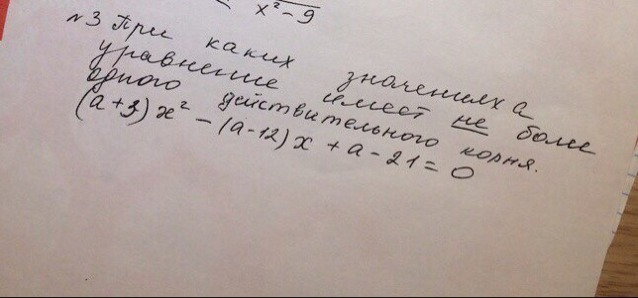 x² - 9
№3 При каких значениях a
уравнение имеет не более
одного действительного корня.
(a + 3) x² - (a - 12) x + a - 21 = 0